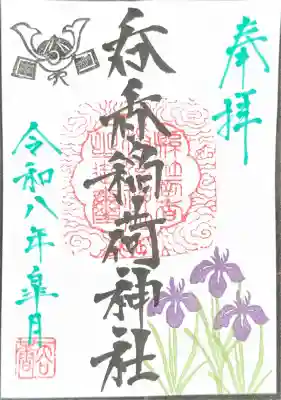 奉拝
呑香稲荷神社
令和八年皐月